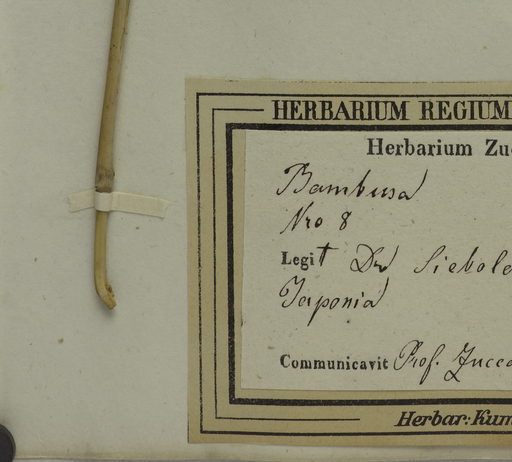 HERBARIUM REGIUM
Herbarium Zu
Bambusa
Nro 8
Legit Dr Siebold
Japonia
Communicavit Prof. Zucca
Herbar: Kum